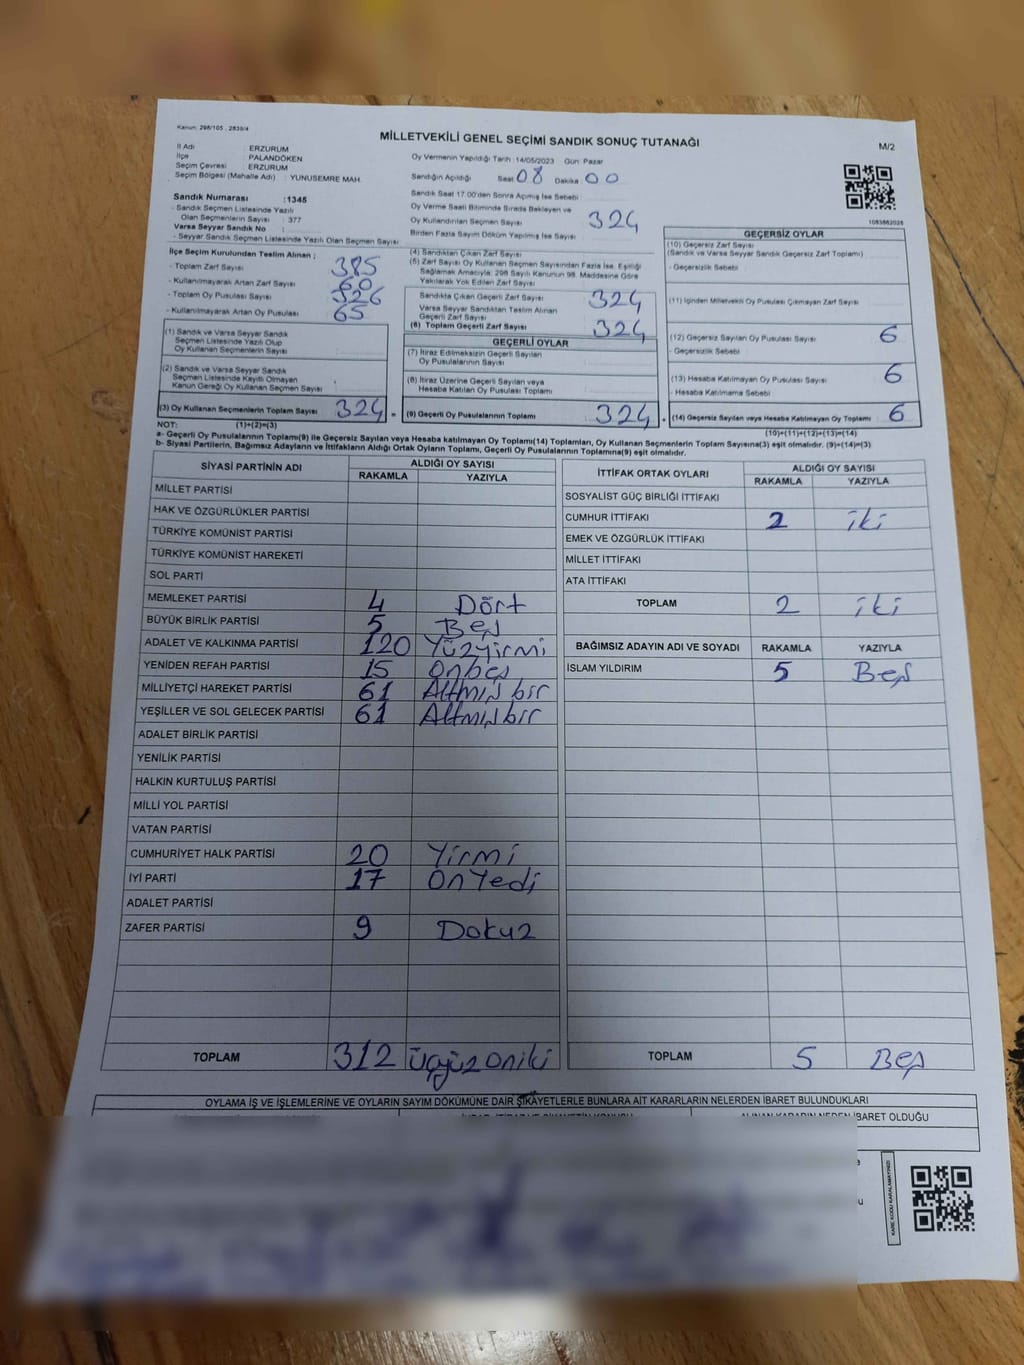 Kanun: 298/105 , 2839/4
MİLLETVEKİLİ GENEL SEÇİMİ SANDIK SONUÇ TUTANAĞI
M/2
İl Adı : ERZURUM
İlçe : PALANDÖKEN
Seçim Çevresi : ERZURUM
Seçim Bölgesi (Mahalle Adı) : YUNUSEMRE MAH.
Oy Vermenin Yapıldığı Tarih :14/05/2023 Gün: Pazar
Sandığın Açıldığı Saat 08 Dakika 00
Sandık Saat 17:00'den Sonra Açılmış İse Sebebi
Oy Verme Saati Bitiminde Sırada Bekleyen ve
Oy Kullandırılan Seçmen Sayısı 324
Birden Fazla Sayım Döküm Yapılmış İse Sayısı
1083862025
Sandık Numarası :1345
- Sandık Seçmen Listesinde Yazılı
Olan Seçmenlerin Sayısı : 377
Varsa Seyyar Sandık No :
- Seyyar Sandık Seçmen Listesinde Yazılı Olan Seçmen Sayısı
İlçe Seçim Kurulundan Teslim Alınan ;
- Toplam Zarf Sayısı 385
- Kullanılmayarak Artan Zarf Sayısı 60
- Toplam Oy Pusulası Sayısı 326
- Kullanılmayarak Artan Oy Pusulası 65
(1) Sandık ve Varsa Seyyar Sandık
Seçmen Listesinde Yazılı Olup
Oy Kullanan Seçmenlerin Sayısı
(2) Sandık ve Varsa Seyyar Sandık
Seçmen Listesinde Kayıtlı Olmayan
Kanun Gereği Oy Kullanan Seçmen Sayısı
(3) Oy Kullanan Seçmenlerin Toplam Sayısı 324 =
(4) Sandıktan Çıkan Zarf Sayısı
(5) Zarf Sayısı Oy Kullanan Seçmen Sayısından Fazla İse, Eşitliği
Sağlamak Amacıyla; 298 Sayılı Kanunun 98. Maddesine Göre
Yakılarak Yok Edilen Zarf Sayısı
Sandıkta Çıkan Geçerli Zarf Sayısı 324
Varsa Seyyar Sandıktan Teslim Alınan
Geçerli Zarf Sayısı
(6) Toplam Geçerli Zarf Sayısı 324
GEÇERLİ OYLAR
(7) İtiraz Edilmeksizin Geçerli Sayılan
Oy Pusulalarının Sayısı
(8) İtiraz Üzerine Geçerli Sayılan veya
Hesaba Katılan Oy Pusulası Toplamı
(9) Geçerli Oy Pusulalarının Toplamı 324 +
GEÇERSİZ OYLAR
(10) Geçersiz Zarf Sayısı
(Sandık ve Varsa Seyyar Sandık Geçersiz Zarf Toplamı)
- Geçersizlik Sebebi
(11) İçinden Milletvekili Oy Pusulası Çıkmayan Zarf Sayısı
(12) Geçersiz Sayılan Oy Pusulası Sayısı 6
- Geçersizlik Sebebi
(13) Hesaba Katılmayan Oy Pusulası Sayısı 6
- Hesaba Katılmama Sebebi
(14) Geçersiz Sayılan veya Hesaba Katılmayan Oy Toplamı 6
NOT: (1)+(2)=(3)
(10)+(11)+(12)+(13)=(14)
a- Geçerli Oy Pusulalarının Toplamı(9) ile Geçersiz Sayılan veya Hesaba katılmayan Oy Toplamı(14) Toplamları, Oy Kullanan Seçmenlerin Toplam Sayısına(3) eşit olmalıdır. (9)+(14)=(3)
b- Siyasi Partilerin, Bağımsız Adayların ve İttifakların Aldığı Ortak Oyların Toplamı, Geçerli Oy Pusulalarının Toplamına(9) eşit olmalıdır.
SİYASİ PARTİNİN ADI ALDIĞI OY SAYISI
RAKAMLA YAZIYLA
MİLLET PARTİSİ
HAK VE ÖZGÜRLÜKLER PARTİSİ
TÜRKİYE KOMÜNİST PARTİSİ
TÜRKİYE KOMÜNİST HAREKETİ
SOL PARTİ
MEMLEKET PARTİSİ 4 Dört
BÜYÜK BİRLİK PARTİSİ 5 Beş
ADALET VE KALKINMA PARTİSİ 120 Yüzyirmi
YENİDEN REFAH PARTİSİ 15 Onbeş
MİLLİYETÇİ HAREKET PARTİSİ 61 Altmış bir
YEŞİLLER VE SOL GELECEK PARTİSİ 61 Altmış bir
ADALET BİRLİK PARTİSİ
YENİLİK PARTİSİ
HALKIN KURTULUŞ PARTİSİ
MİLLİ YOL PARTİSİ
VATAN PARTİSİ
CUMHURİYET HALK PARTİSİ 20 Yirmi
İYİ PARTİ 17 On Yedi
ADALET PARTİSİ
ZAFER PARTİSİ 9 Dokuz
TOPLAM 312 üçyüz oniki
İTTİFAK ORTAK OYLARI ALDIĞI OY SAYISI
RAKAMLA YAZIYLA
SOSYALİST GÜÇ BİRLİĞİ İTTİFAKI
CUMHUR İTTİFAKI 2 iki
EMEK VE ÖZGÜRLÜK İTTİFAKI
MİLLET İTTİFAKI
ATA İTTİFAKI
TOPLAM 2 iki
BAĞIMSIZ ADAYIN ADI VE SOYADI RAKAMLA YAZIYLA
İSLAM YILDIRIM 5 Beş
TOPLAM 5 Beş
OYLAMA İŞ VE İŞLEMLERİNE VE OYLARIN SAYIM DÖKÜMÜNE DAİR ŞİKAYETLERLE BUNLARA AİT KARARLARIN NELERDEN İBARET BULUNDUKLARI
ALINAN KARARIN NEDEN İBARET OLDUĞU
KARE KODU KARALAMAYINIZ!